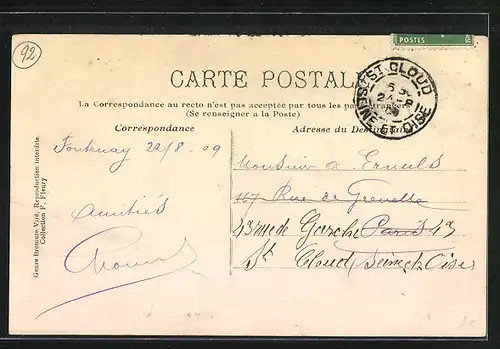 92
POSTES
CARTE POSTALE
La Correspondance au recto n'est pas acceptée par tous les pays étrangers
(Se renseigner a la Poste)
ST CLOUD
SEINE ET OISE
Correspondance
Adresse du Destinataire
Fontenay 22/8 09
Amitiés
Monsieur
167 Rue de Grenelle
Paris
St Cloud Seine et Oise
Genre Bromure Viré, Reproduction interdite
Collection F. Fleury